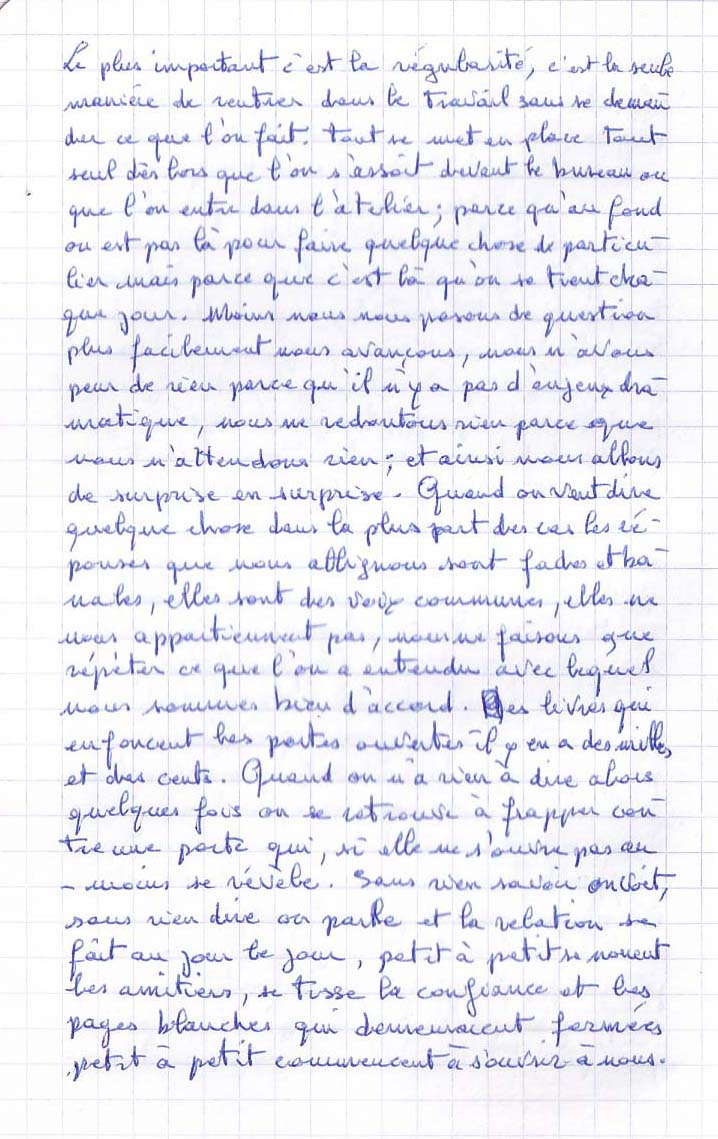 Le plus important c'est la régularité, c'est la seule
manière de rentrer dans le travail sans se deman
der ce que l'on fait. Tout se met en place tout
seul dès lors que l'on s'assoit devant le bureau ou
que l'on entre dans l'atelier; parce qu'au fond
on est pas là pour faire quelque chose de particu-
lier mais parce que c'est là qu'on se tient cha-
que jour. Moins nous nous posons de question
plus facilement nous avançons, nous n'avons
peur de rien parce qu'il n'y a pas d'enjeux dra-
matique, nous ne redoutons rien parce que
nous n'attendons rien; et ainsi nous allons
de surprise en surprise. Quand on veut dire
quelque chose dans la plus part des cas les ré-
ponses que nous allignons sont fades et ba-
nales, elles sont des voix communes, elles ne
nous appartiennent pas, nous ne faisons que
répéter ce que l'on a entendu avec lequel
nous sommes bien d'accord. Des livres qui
enfoncent les portes ouvertes il y en a des milles,
et des cents. Quand on n'a rien à dire alors
quelques fois on se retrouve à frapper con-
tre une porte qui, si elle ne s'ouvre pas au
- moins se révèle. Sans rien savoir on voit,
sans rien dire on parle et la relation se
fait au jour le jour, petit à petit se nouent
les amitiers, se tisse la confiance et les
pages blanches qui demeuraient fermées
petit à petit commencent à s'ouvrir à nous.